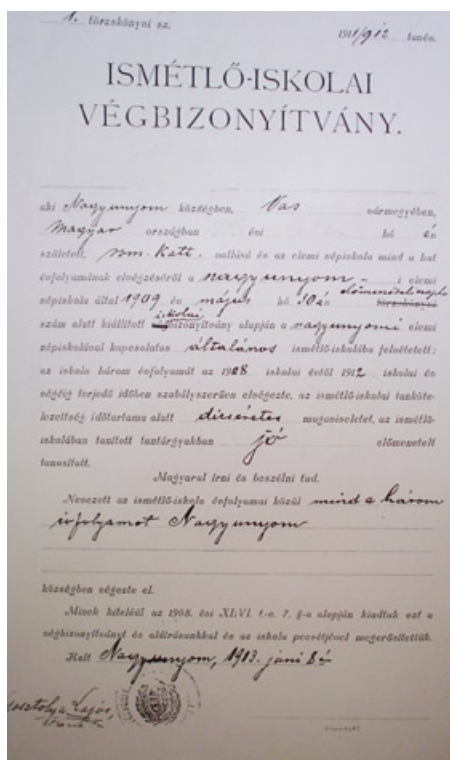 1. törzskönyvi sz.
1911/912 tanév.
ISMÉTLŐ-ISKOLAI
VÉGBIZONYÍTVÁNY.
aki Nagyunyom községben, Vas vármegyében,
Magyar országban évi hó án
született, rom. kath. vallású és az elemi népiskola mind a hat
évfolyamának elvégzéséről a nagyunyom - i elemi
népiskola által 1909 év május hó 30 án
szám alatt kiállított iskolai bizonyítvány alapján a nagyunyomi elemi
népiskolával kapcsolatos általános ismétlő-iskolába felvétetett:
az iskola három évfolyamát az 1908 iskolai évtől 1912 iskolai év
végéig terjedő időben szabályszerűen elvégezte, az ismétlő-iskolai tanköte-
lezettség időtartama alatt dicséretes magaviseletet, az ismétlő-
iskolában tanított tantárgyakban jó előmenetelt
tanusított.
Magyarul írni és beszélni tud.
Nevezett az ismétlő-iskola évfolyamai közül mind a három
évfolyamot Nagyunyom
községben végezte el.
Minek hiteléül az 1908. évi XLVI. t.-c. 7. §-a alapján kiadtuk ezt a
végbizonyítványt és aláírásunkkal és az iskola pecsétjével megerősítettük.
Kelt Nagyunyom, 1913. juni 8 án
Lajos